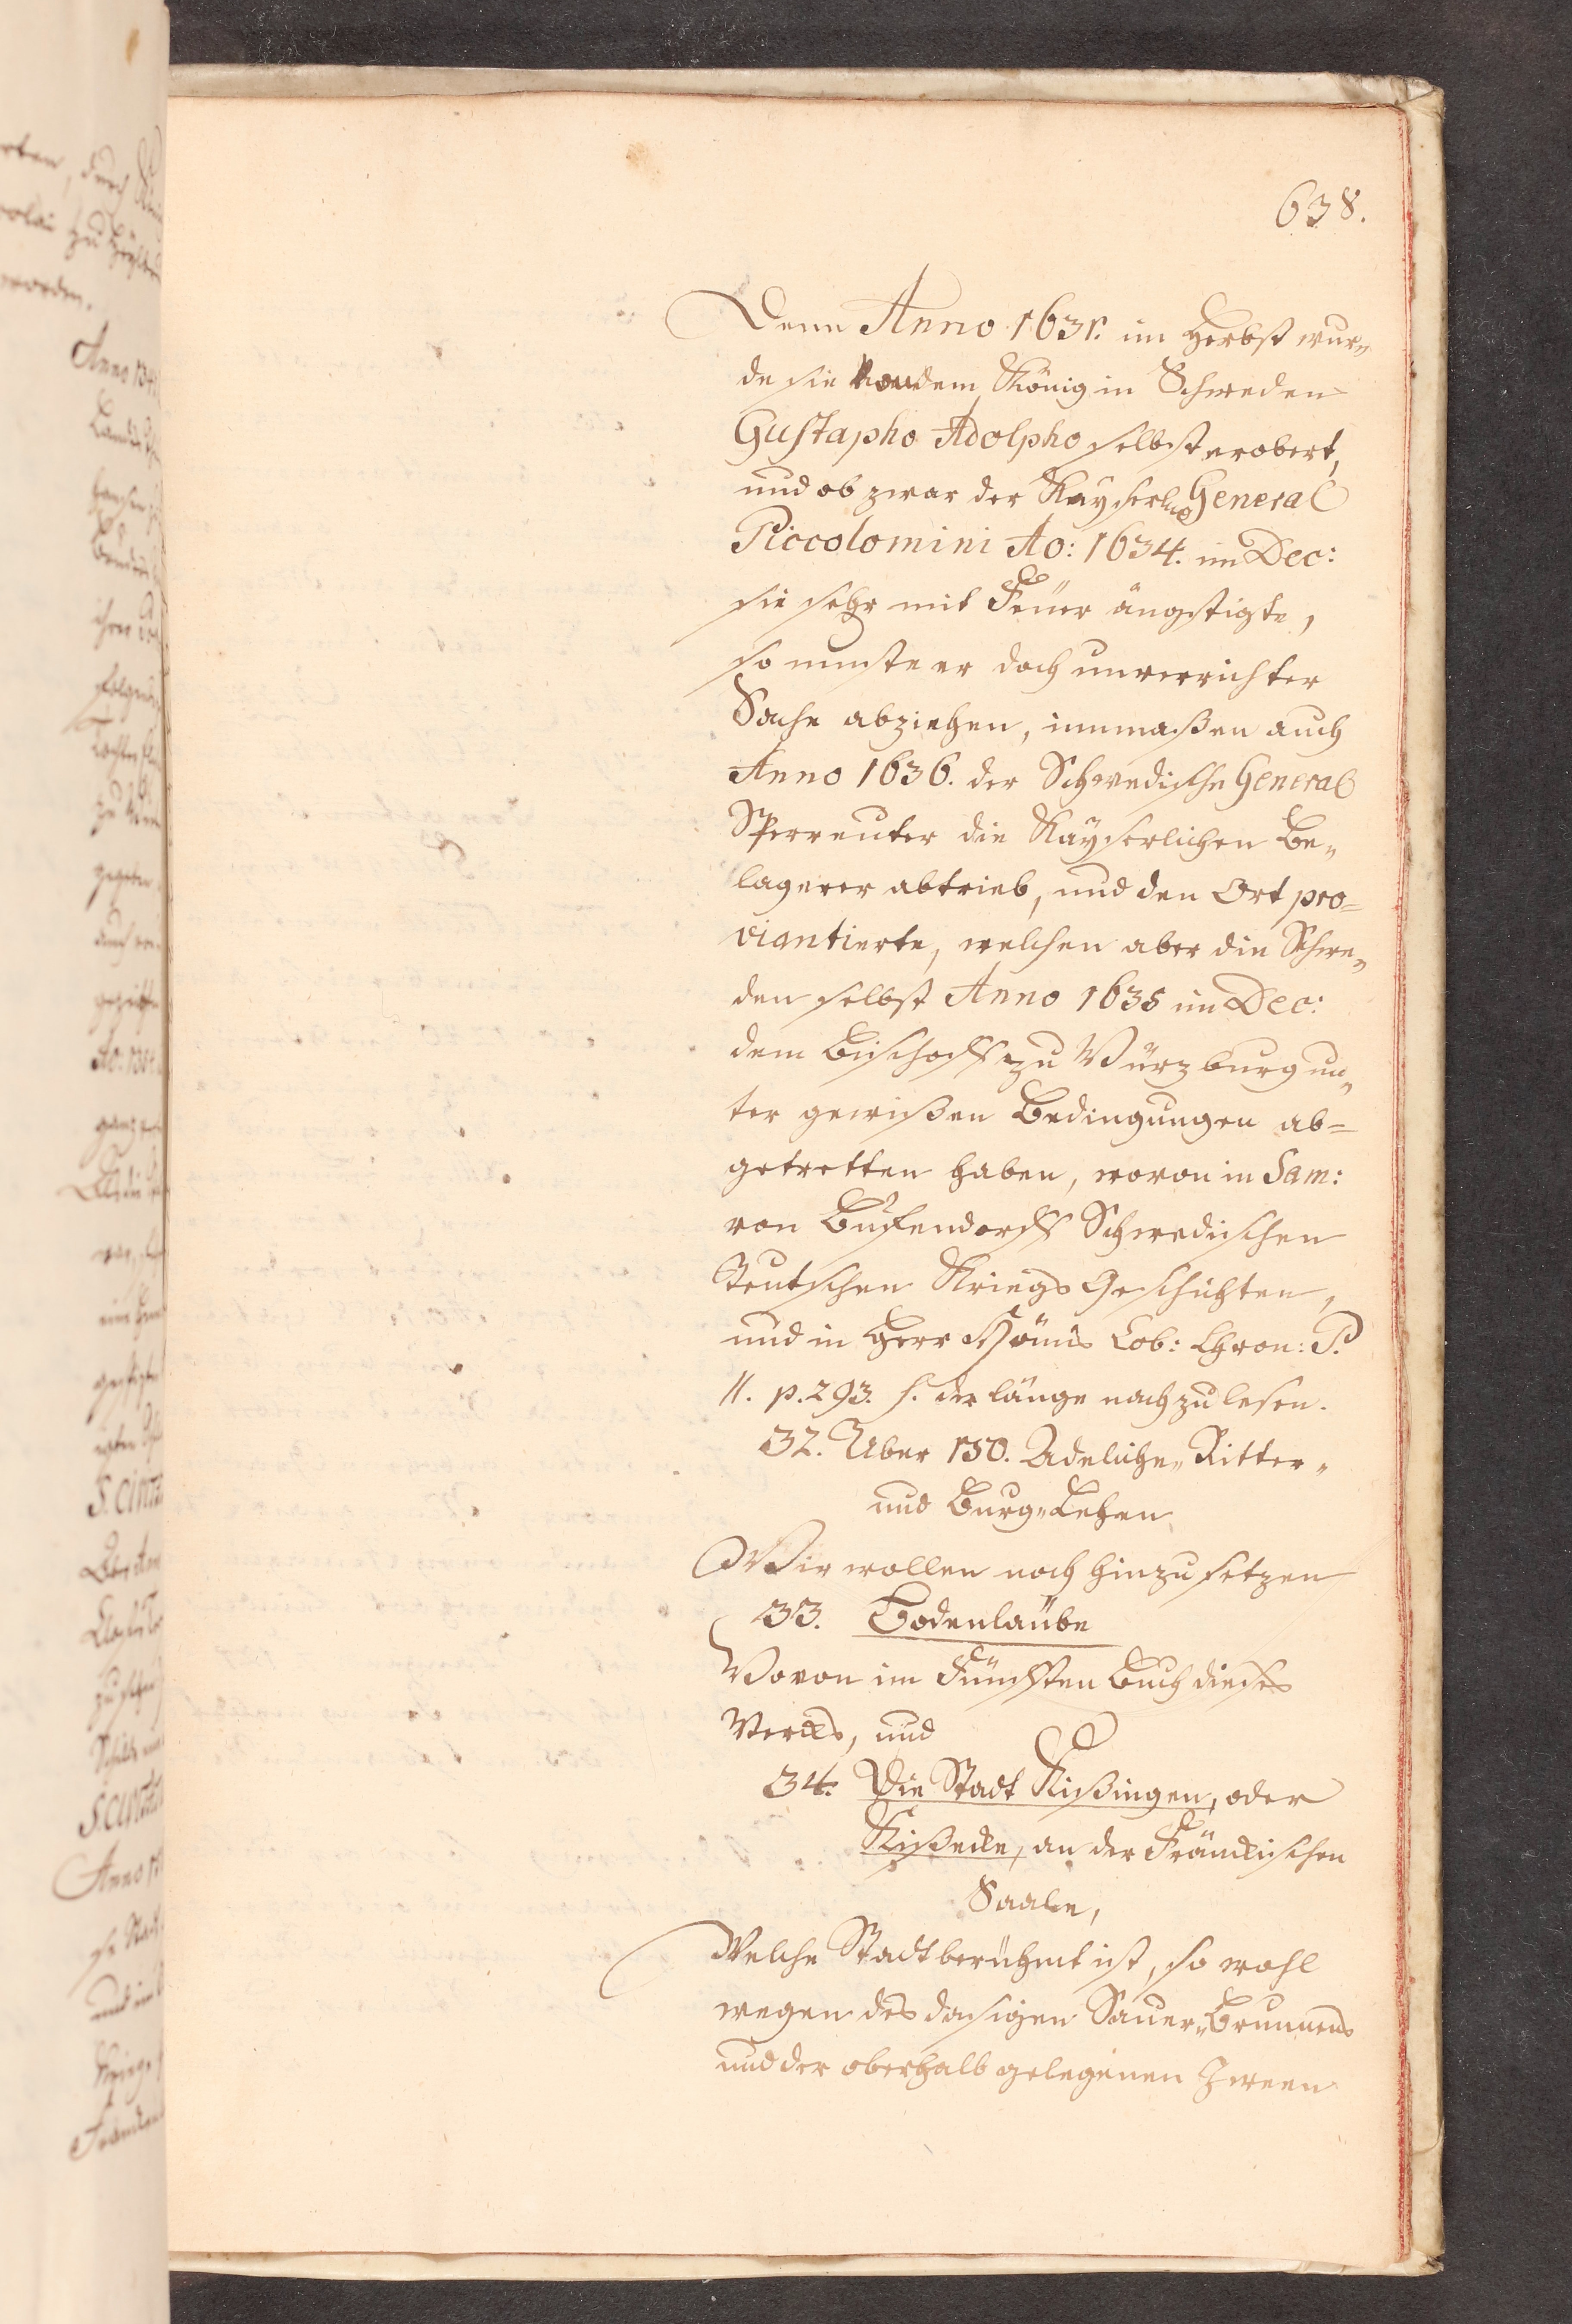 638.
Denn Anno 1631. im Herbst wur„
de sie von dem König in Schweden
Gustapho Adolpho selbst erobert,
und ob zwar der Kayserl. General
Piccolomini Ao: 1634. im Dec:
sie sehr mit Feüer ängstigte,
so muste er doch unverrichter
Sache abziehen, immaßen auch
Anno 1636. der Schwedische General
Sperreuter die Kayserlichen Be„
lagerer abtrieb, und den Ort pro=
viantierte, welchen aber die Schwe„
den selbst Anno 1635 im Dec:
dem Bischoff zu Würzburg un„
ter gewißen Bedingungen ab=
getretten haben, wovon in Sam:
von Bufendorffs Schwedischen
Teutschen Kriegs Geschichten,
und in Herr Hönns Cob: Chron: P.
II. p. 293. f. der länge nach zu lesen.
32. Über 150. Adeliche„ Ritter„
und Burg„Lehen
Wir wollen noch hinzu setzen
33. Bodenlaübe
Wovon im Fünfften Buch dieses
Wercks, und
34. Die Stadt Kißingen, oder
Kißecke, an der Fränckischen
Saale,
Welche Stadt berühmt ist, so wohl
wegen des dasigen Sauer„Brunnens
und der oberhalb gelegenen Zween
Anno 134
Ao: 
S. 
S. 
Anno